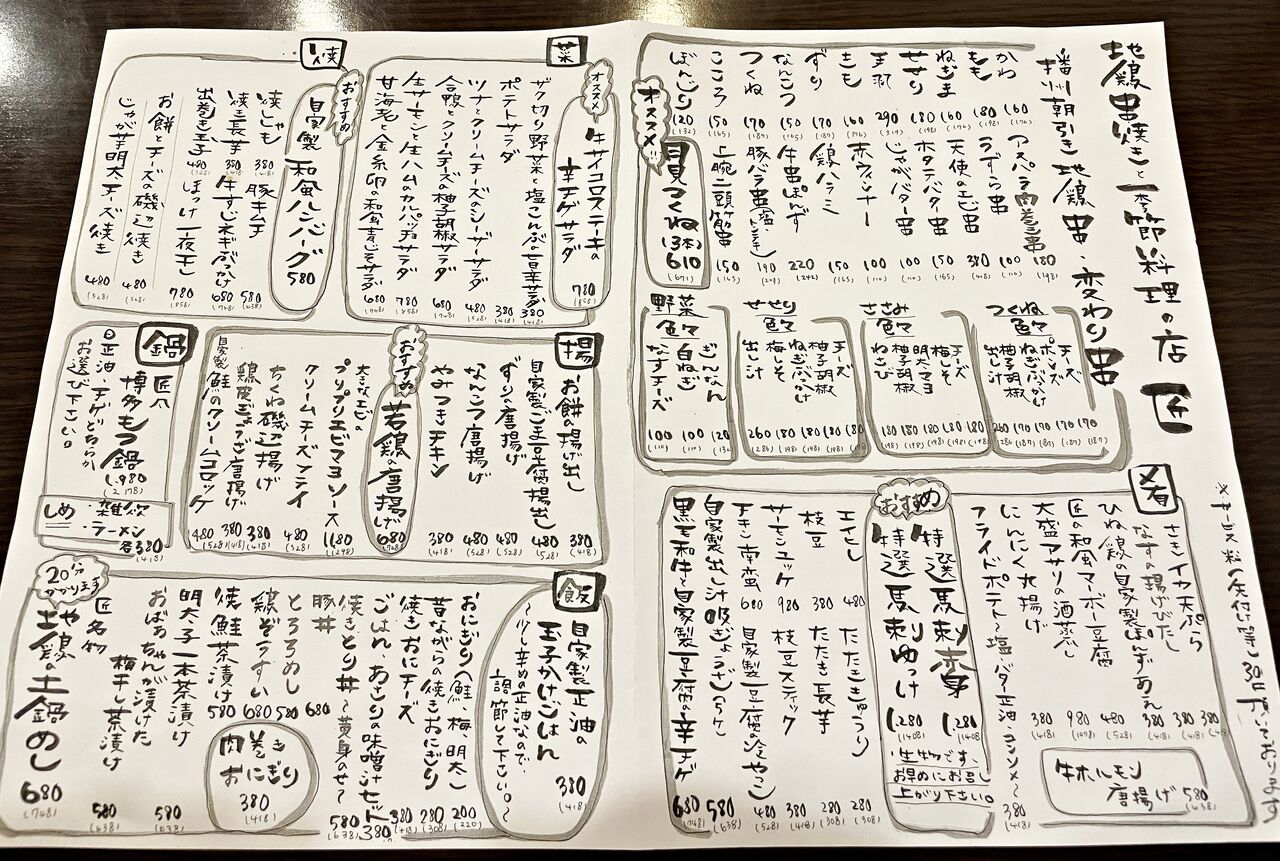 地鶏串焼きと季節料理の店 匠
播州朝引き地鶏串・変わり串
かわ 160 (176)
もも 180 (198)
ねぎま 160 (176)
せせり 180 (198)
手羽 290 (319)
きも 160 (176)
ずり 170 (187)
なんこつ 150 (165)
つくね 170 (187)
こころ 150 (165)
ぼんじり 120 (132)
アスパラ肉巻き串 180 (198)
うずら串 100 (110)
天使のエビ串 380 (418)
ホタテバター串 150 (165)
じゃがバター串 100 (110)
赤ウィンナー 100 (110)
鶏ハラミ 150 (165)
牛串ぽんず 220 (242)
豚バラ串 190 (209)
上腕二頭筋串 150 (165)
オススメ!!
月見つくね (3本) 610 (671)
つくね色々
チーズ 170 (187)
ポンズ 170 (187)
ねぎぶっかけ 170 (187)
柚子胡椒 170 (187)
出し汁 260 (286)
ささみ色々
チーズ 180 (198)
梅しそ 180 (198)
明太マヨ 180 (198)
柚子胡椒 180 (198)
わさび 180 (198)
せせり色々
チーズ 180
柚子胡椒 180 (198)
ねぎぶっかけ 180 (198)
梅しそ 180 (198)
出し汁 260 (286)
野菜色々
ぎんなん 120
白ねぎ 100 (110)
なすチーズ 100 (110)
※サービス料(矢付け等) 30に頂いております
肴
さきイカ天ぷら 380
なすの揚げびたし 380 (418)
ひね鶏の自家製ぽんずあえ 380 (418)
匠の和風マーボー豆腐 480 (528)
大盛アサリの酒蒸し 980 (1078)
にんにく丸揚げ 380 (418)
フライドポテト〜塩・バター正油・コンソメ〜 380 (418)
牛ホルモン唐揚げ 580 (638)
おすすめ
特選馬刺赤身 1,280 (1408)
特選馬刺りゆっけ 1,280 (1408)
生物です、
お早めにお召し
上がり下さい。
エイヒレ 480
枝豆 380
サーモンユッケ 980
下きも南蛮 680
たたききゅうり 280 (308)
たたき長芋 280 (308)
枝豆スティック 380 (418)
自家製豆腐の冷やっこ 480 (528)
自家製出し汁吸ぎょうざ 580 (638)
黒毛和牛と自家製豆腐の辛チゲ 680 (748)
菜
オススメ
牛サイコロステーキの
辛チゲサラダ 780 (858)
ザク切り野菜と塩こんぶの旨辛サラダ 380 (418)
ポテトサラダ 380 (418)
ツナとクリームチーズのシーザーサラダ 480 (528)
合鴨とクリームチーズの柚子胡椒サラダ 680 (748)
生サーモンと生ハムのカルパッチョサラダ 780 (858)
甘海老と金糸卵の和風青じそサラダ 680 (748)
焼
おすすめ
自家製 和風ハンバーグ 580
焼しゃも 380 (418)
焼き長芋 380 (418)
出巻き玉子 480 (528)
豚キムチ 580 (638)
牛すじネギぶっかけ 680 (748)
ほっけ一夜干し 780 (858)
お餅とチーズの磯辺焼き 480 (528)
じゃが芋明太チーズ焼き 480 (528)
揚
お餅の揚げ出し 380 (418)
自家製ごま豆腐揚出し 480 (528)
ずりの唐揚げ 480 (528)
なんこつ唐揚げ 480 (528)
やみつきチキン 380 (418)
おすすめ
若鶏の唐揚げ 680 (748)
大きなエビの
プリプリエビマヨソース 1180 (1298)
クリームチーズフライ 480 (528)
ちくわ磯辺揚げ 380 (418)
鶏皮ぎょうざ唐揚げ 380 (418)
自家製 鮭のクリームコロッケ 480 (528)
鍋
匠の
博多もつ鍋 1,980 (2178)
正油・チゲどちらか
お選び下さい。
しめ
・雑炊
・ラーメン
各380 (418)
飯
自家製正油の
玉子かけごはん 380 (418)
〜少し辛めの正油なので、
調節して下さい。〜
おにぎり(鮭、梅、明太) 200 (220)
昔ながらの焼きおにぎり 280 (308)
焼きおにチーズ 380 (418)
ごはん・あさりの味噌汁セット 380
焼きとり丼〜黄身のせ〜 580 (638)
豚丼 680
とろろめし 580
鶏ぞうすい 680
焼鮭茶漬け 580
明太子一本茶漬け 580 (638)
おばあちゃんが漬けた
梅干し茶漬け 580 (638)
肉巻き
おにぎり
380
(418)
20分
かかります
匠名物
や鶏の土鍋めし 680 (748)